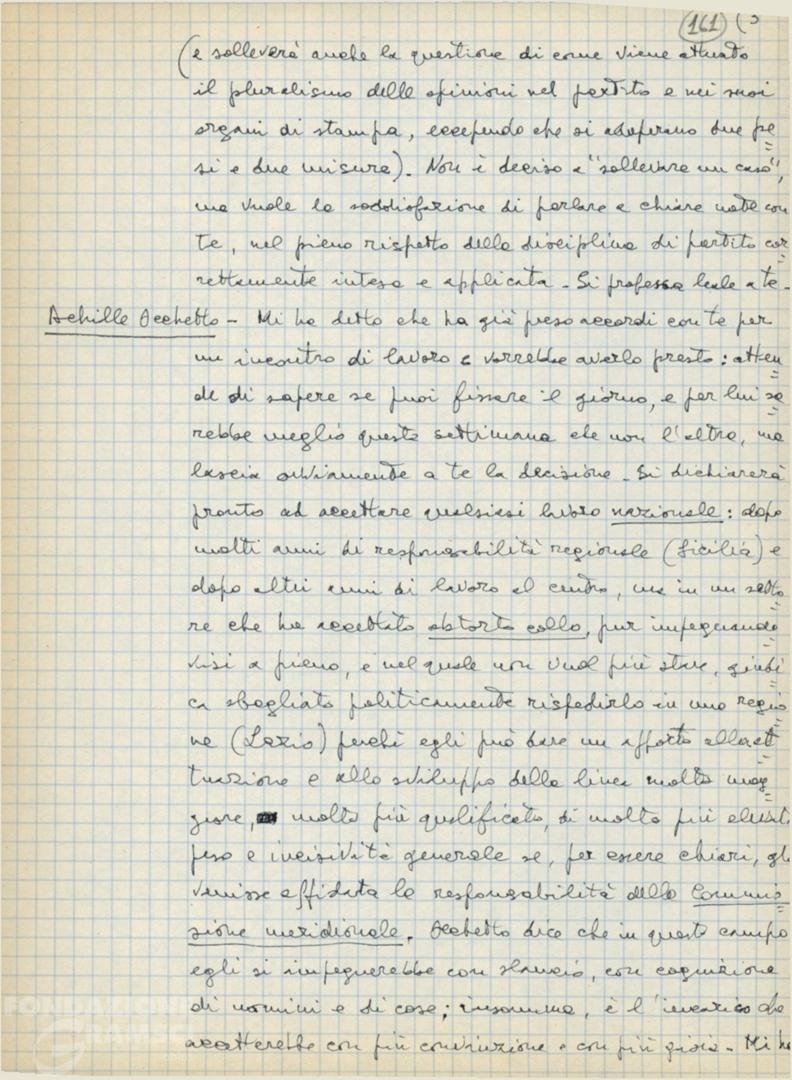 161 (3
(e solleverà anche la questione di come viene attuato
il pluralismo delle opinioni nel partito e nei suoi
organi di stampa, eccependo che si adoperano due pe=
si e due misure). Non è deciso a "sollevare un caso",
ma vuole la soddisfazione di parlare a chiare note con
te, nel pieno rispetto della disciplina di partito cor=
rettamente intesa e applicata - Si professa leale a te -
Achille Occhetto - Mi ha detto che ha già preso accordi con te per
un incontro di lavoro e vorrebbe averlo presto: atten=
de di sapere se puoi fissare il giorno, e per lui sa=
rebbe meglio questa settimana che non l'altra, ma
lascia ovviamente a te la decisione - Si dichiarerà
pronto ad accettare qualsiasi lavoro nazionale: dopo
molti anni di responsabilità regionale (Sicilia) e
dopo altri anni di lavoro al centro, ma in un setto=
re che ha accettato obtorto collo, pur impegnando=
visi a pieno, e nel quale non vuol più stare, giudi=
ca sbagliato politicamente rispedirlo in una regio=
ne (Lazio) perché egli può dare un apporto all'at=
tuazione e allo sviluppo della linea molto mag=
giore, molto più qualificato, di molto più
peso e incisività generale se, per essere chiari, gli
venisse affidata la responsabilità della Commis=
sione meridionale. Occhetto dice che in questo campo
egli si impegnerebbe con slancio, con cognizione
di uomini e di cose; insomma, è l'incarico che
accetterebbe con più convinzione e con più gioia - Mi ha
FONDAZIONE
GRAMSCI